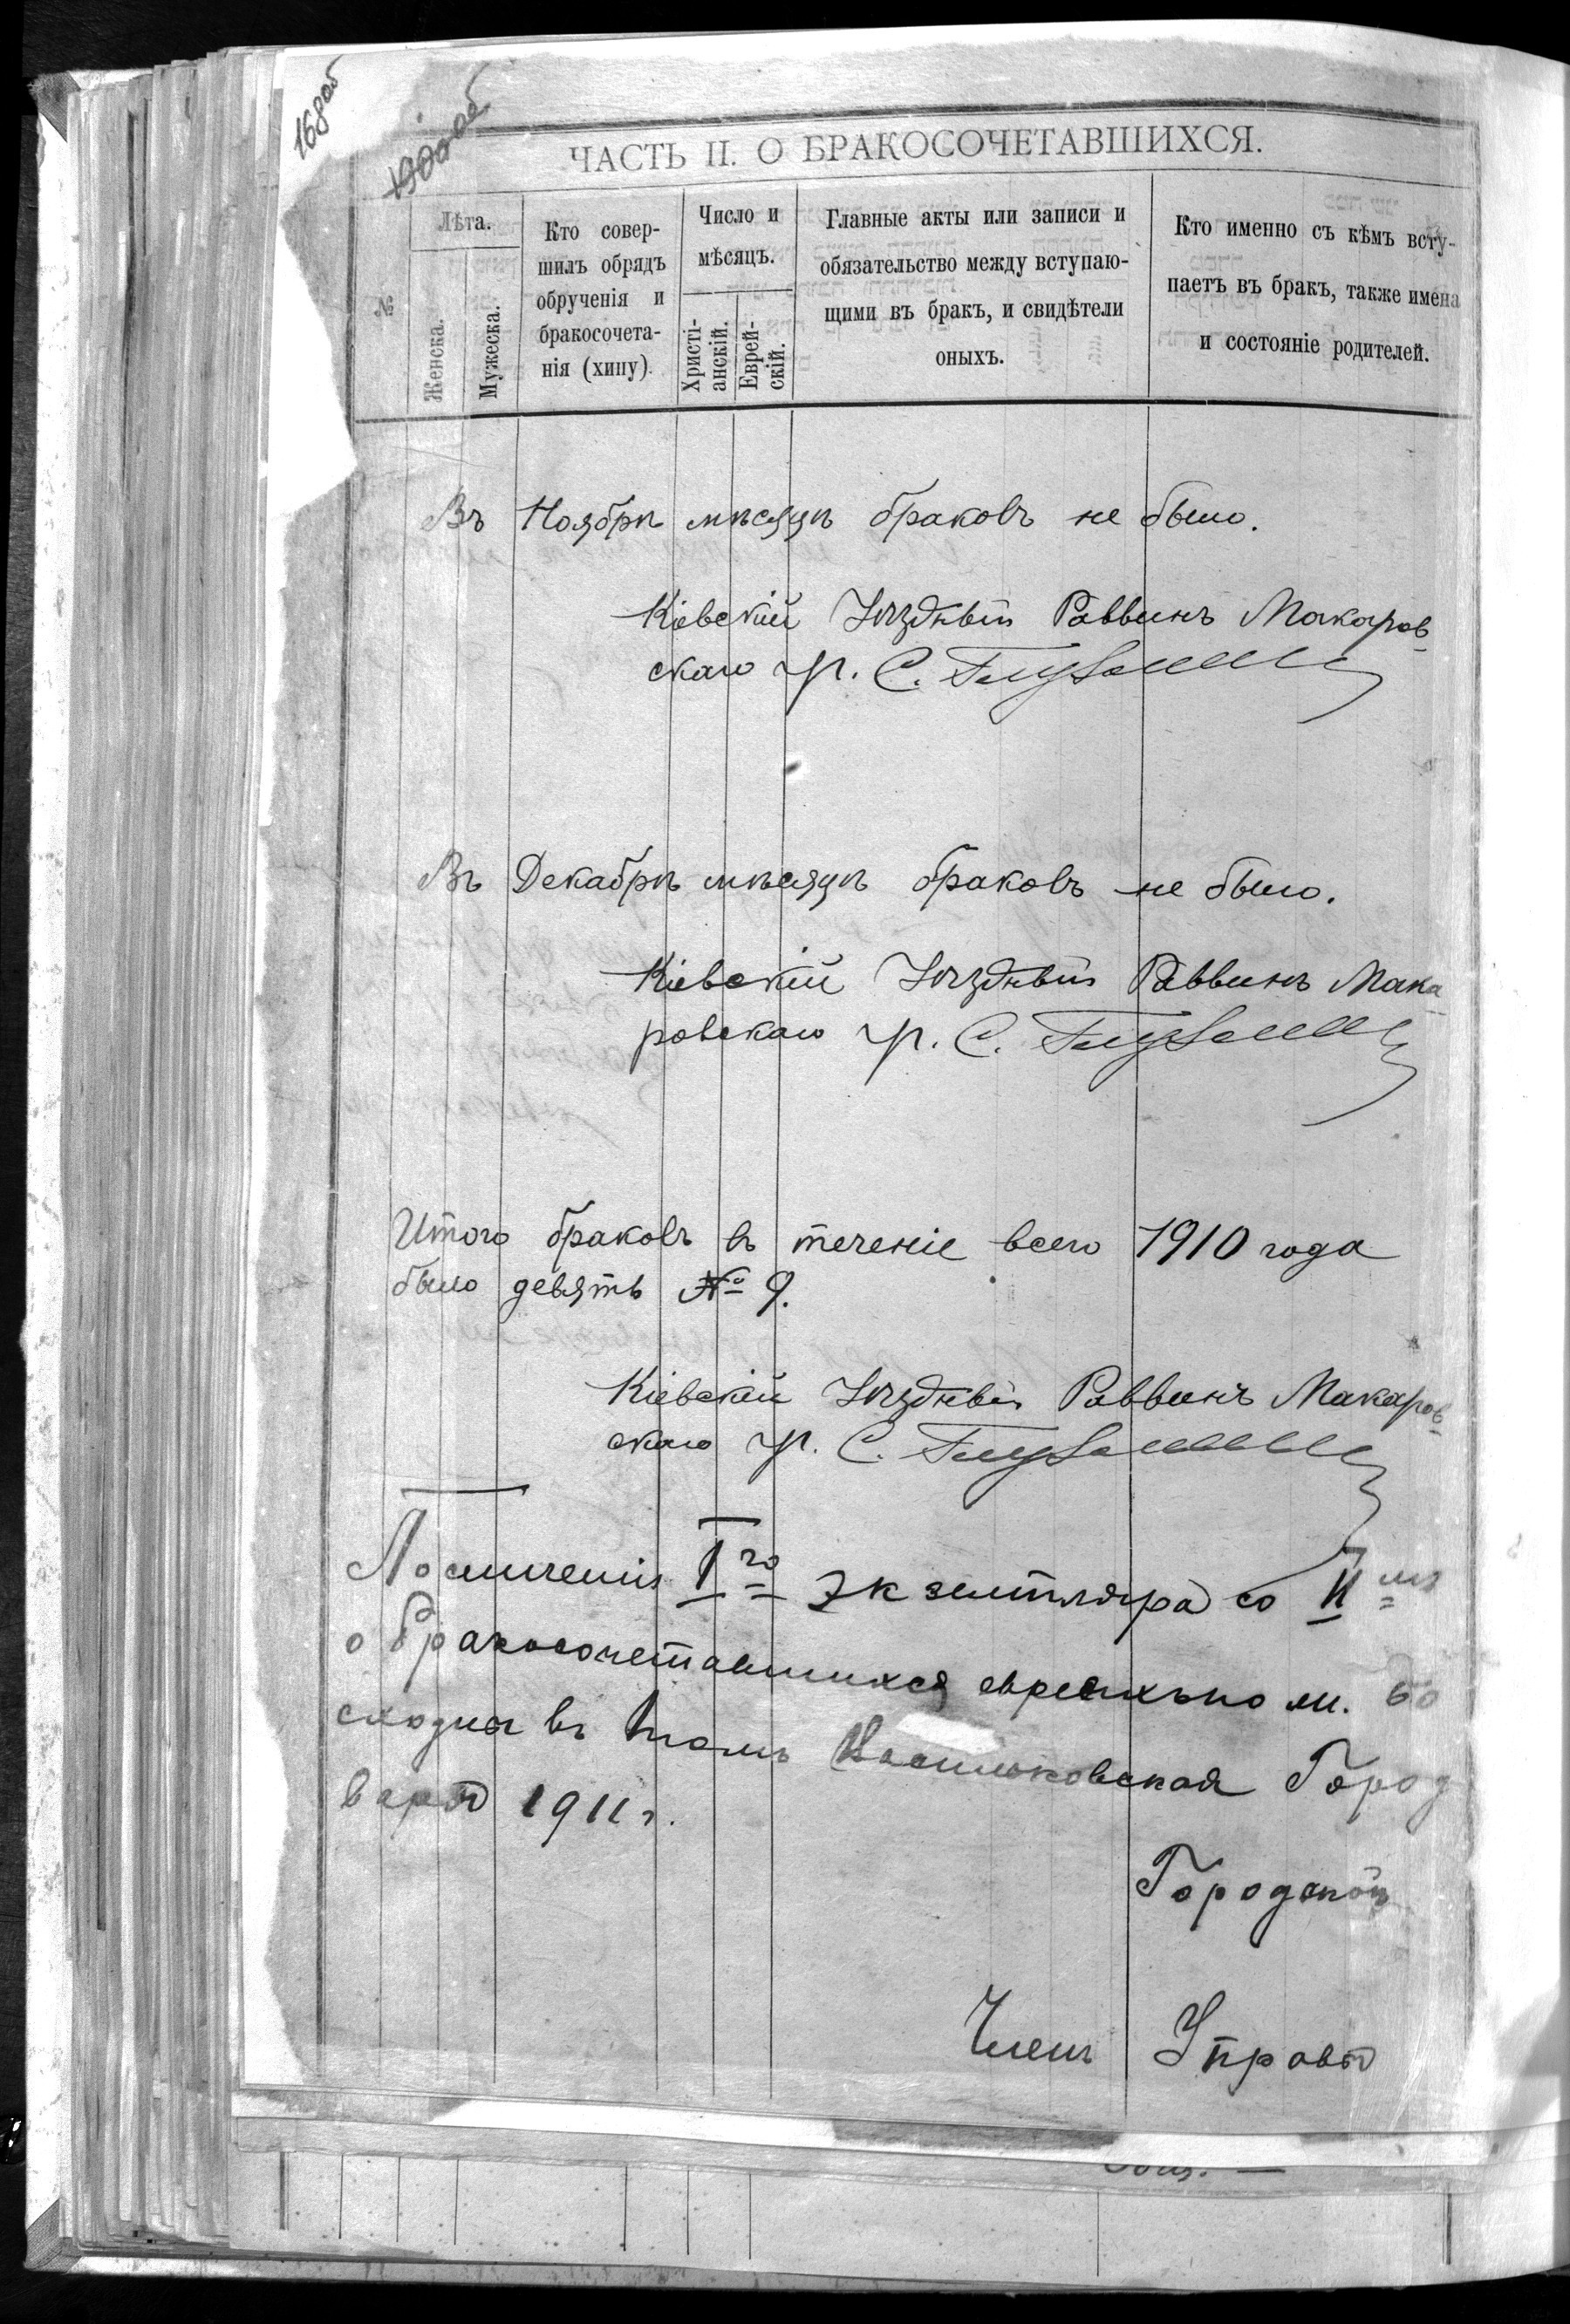 168об
ЧАСТЬ II. О БРАКОСОЧЕТАВШИХСЯ.
№
Лѣта.
Женска.
Мужеска.
Кто совер-
шилъ обрядъ
обрученія и
бракосочета-
нія (хипу).
Число и
мѣсяцъ.
Христі-
анскій.
Еврей-
скій.
Главные акты или записи и
обязательство между вступаю-
щими въ бракъ, и свидѣтели
оныхъ.
Кто именно съ кѣмъ всту-
паетъ въ бракъ, также имена
и состояніе родителей.
Въ Ноябрѣ мѣсяцѣ браковъ не было.
Кіевскій Уѣздный Раввинъ Макаров-
скаго уч. С.
Въ Декабрѣ мѣсяцѣ браковъ не было.
Кіевскій Уѣздный Раввинъ Мака
ровскаго уч. С.
Итого браковъ въ теченіе всего 1910 года
было девять № 9.
Кіевскій Уѣздный Раввинъ Макаров-
скаго уч. С.
По сличеніи I го экземпляра со II мъ
о бракосочетавшихся евреяхъ по м. Бо
сходны въ томъ Васильковская Город
варя 1911 г.
Городской
Членъ Управы